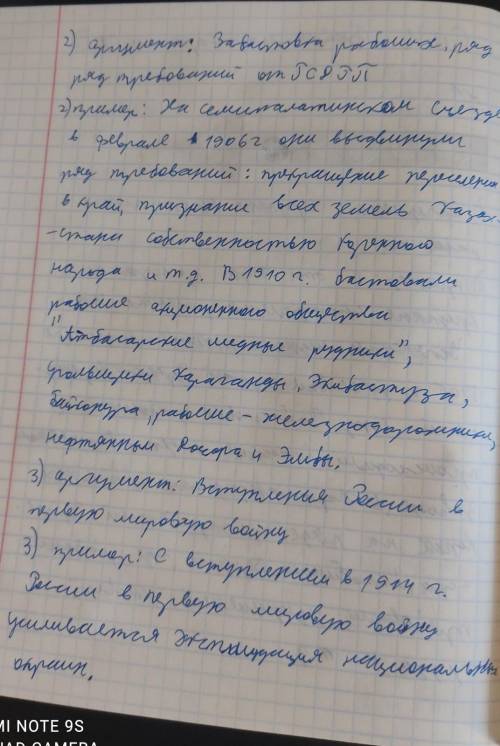 2) аргумент: Забастовка рабочих, ряд
ряд требований от
2) пример: На семипалатинском съезде
в феврале в 1906г они выдвинули
ряд требований: прекращение переселен
в край, признание всех земель Казах
-стана собственностью коренного
народа и т.д. В 1910 г. бастовали
рабочие акционерного общества
"Атбасарские медные рудники",
угольщики Караганды, Экибастуза,
Байконура, рабочие - железнодорожники,
нефтянным Доссора и Эмбы.
3) аргумент: Вступления России в
первую мировую войну
3) пример: С вступлением в 1914 г.
России в первую мировую войну
усиливается эксплуатация национальных
окраин.
MI NOTE 9S